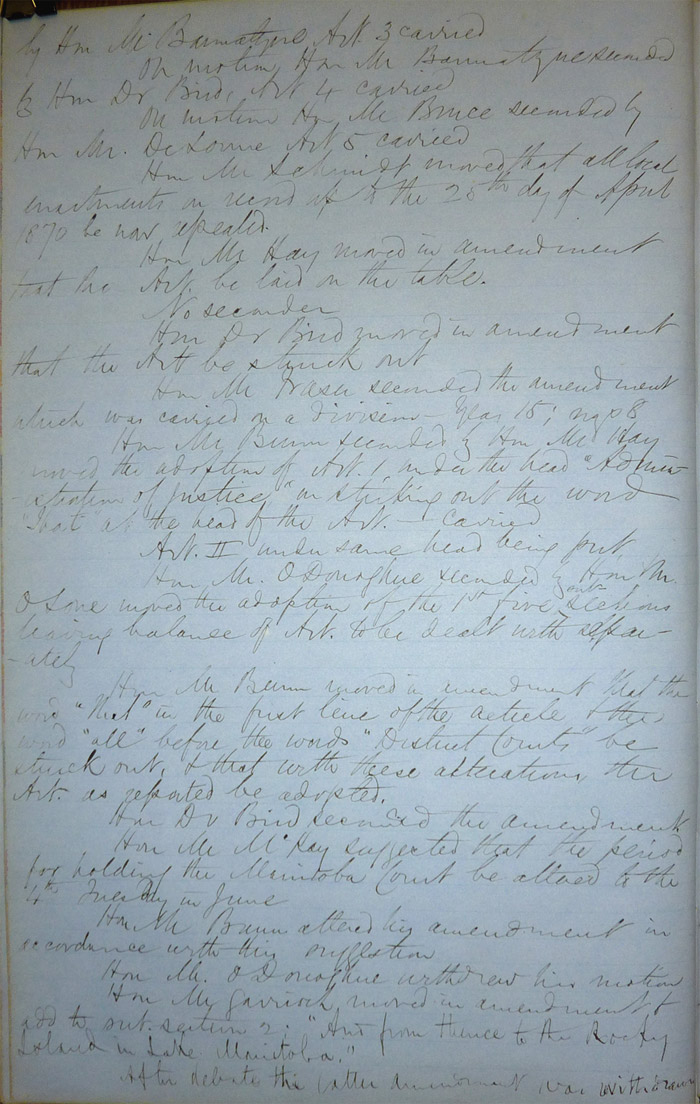 by Hon Mr Bannatyne Art 3 carried
On motion Hon Mr Bannatyne seconded
by Hon Dr Bird, Art 4 carried
On motion Hon Mr Bruce seconded by
Hon Mr. DeLorme Art 5 carried
Hon Mr Schmidt moved that all local
enactments on record up to the 25th day of April
1870 be now repealed.
Hon Mr Hay moved in amendment
that the Art. be laid on the table.
No seconder
Hon Dr Bird moved in amendment
that the Art be struck out
Hon Mr Fraser seconded the amendment
which was carried on a division - Yeas 15; nays 8
Hon Mr Bunn seconded by Hon Mr Hay
moved the adoption of Art. 1, under the head "Admin-
-istration of justice," on striking out the word
"That" at the head of the Art. - carried
Art. II under same head being put
Hon Mr. O'Donoghue seconded by Hon Mr.
DLorme moved the adoption of the 1st five sub sections
leaving balance of Art. to be dealt with separ-
-ately
Hon Mr Bunn moved in amendment that the
word "that" in the first line of the article & the
word "all" before the words "District Courts" be
struck out, & that with these alterations the
Art. as reported be adopted.
Hon Dr Bird seconded the amendment
Hon Mr McKay suggested that the period
for holding the Manitoba Court be altered to the
4th Tuesday in June
Hon Mr Bunn altered his amendment in
accordance with this suggestion
Hon Mr. O'Donoghue withdrew his motion
Hon Mr Garrioch moved in amendment to
add to sub. section 2: "And from thence to the Rocky
Island in Lake Manitoba."
After debate this latter amendment was withdrawn